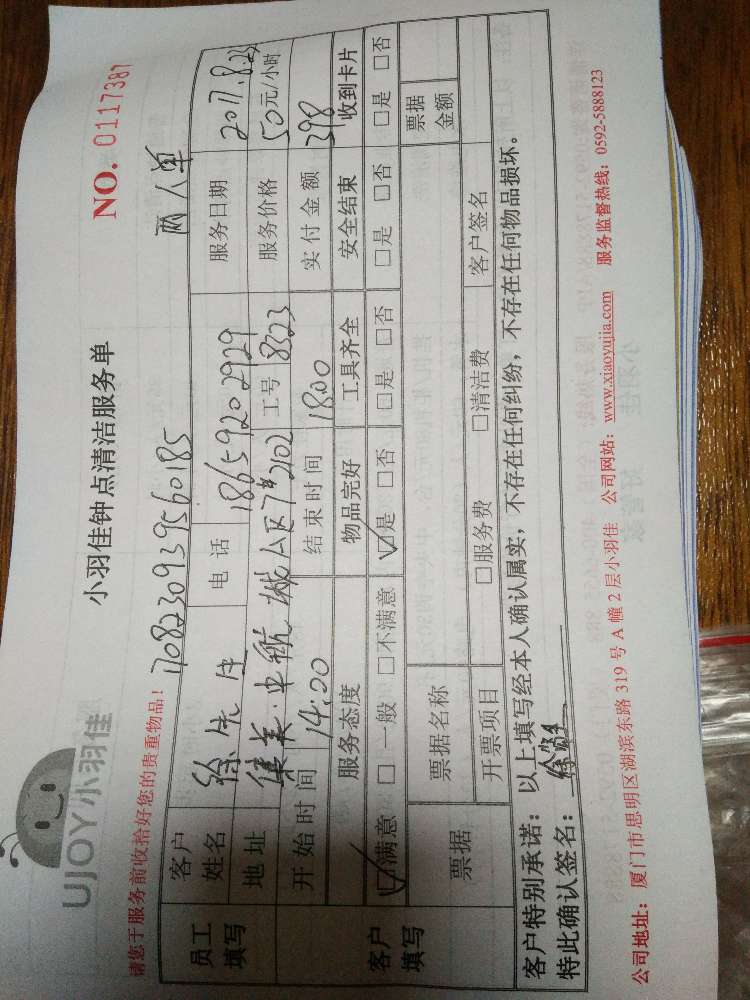 UJOY小羽佳
小羽佳钟点清洁服务单
NO. 0117387
请您于服务前收拾好您的贵重物品！ 1708230939560185 两人单
员工填写 客户姓名 徐先生 电话 18659202929 服务日期 2017.8.23
地址 集美·中航城A区7#2102 工号 8323 服务价格 50元/小时
开始时间 14:00 结束时间 18:00 实付金额 398
客户填写 服务态度 物品完好 工具齐全 安全结束 收到卡片
☑满意 □一般 □不满意 ☑是 □否 □是 □否 □是 □否 □是 □否
票据 票据名称 票据金额
开票项目 □服务费 □清洁费 客户签名
客户特别承诺：以上填写经本人确认属实，不存在任何纠纷，不存在任何物品损坏。
特此确认签名：
公司地址：厦门市思明区湖滨东路 319 号 A 幢 2 层小羽佳 公司网站：www.xiaoyujia.com 服务监督热线：0592-5888123